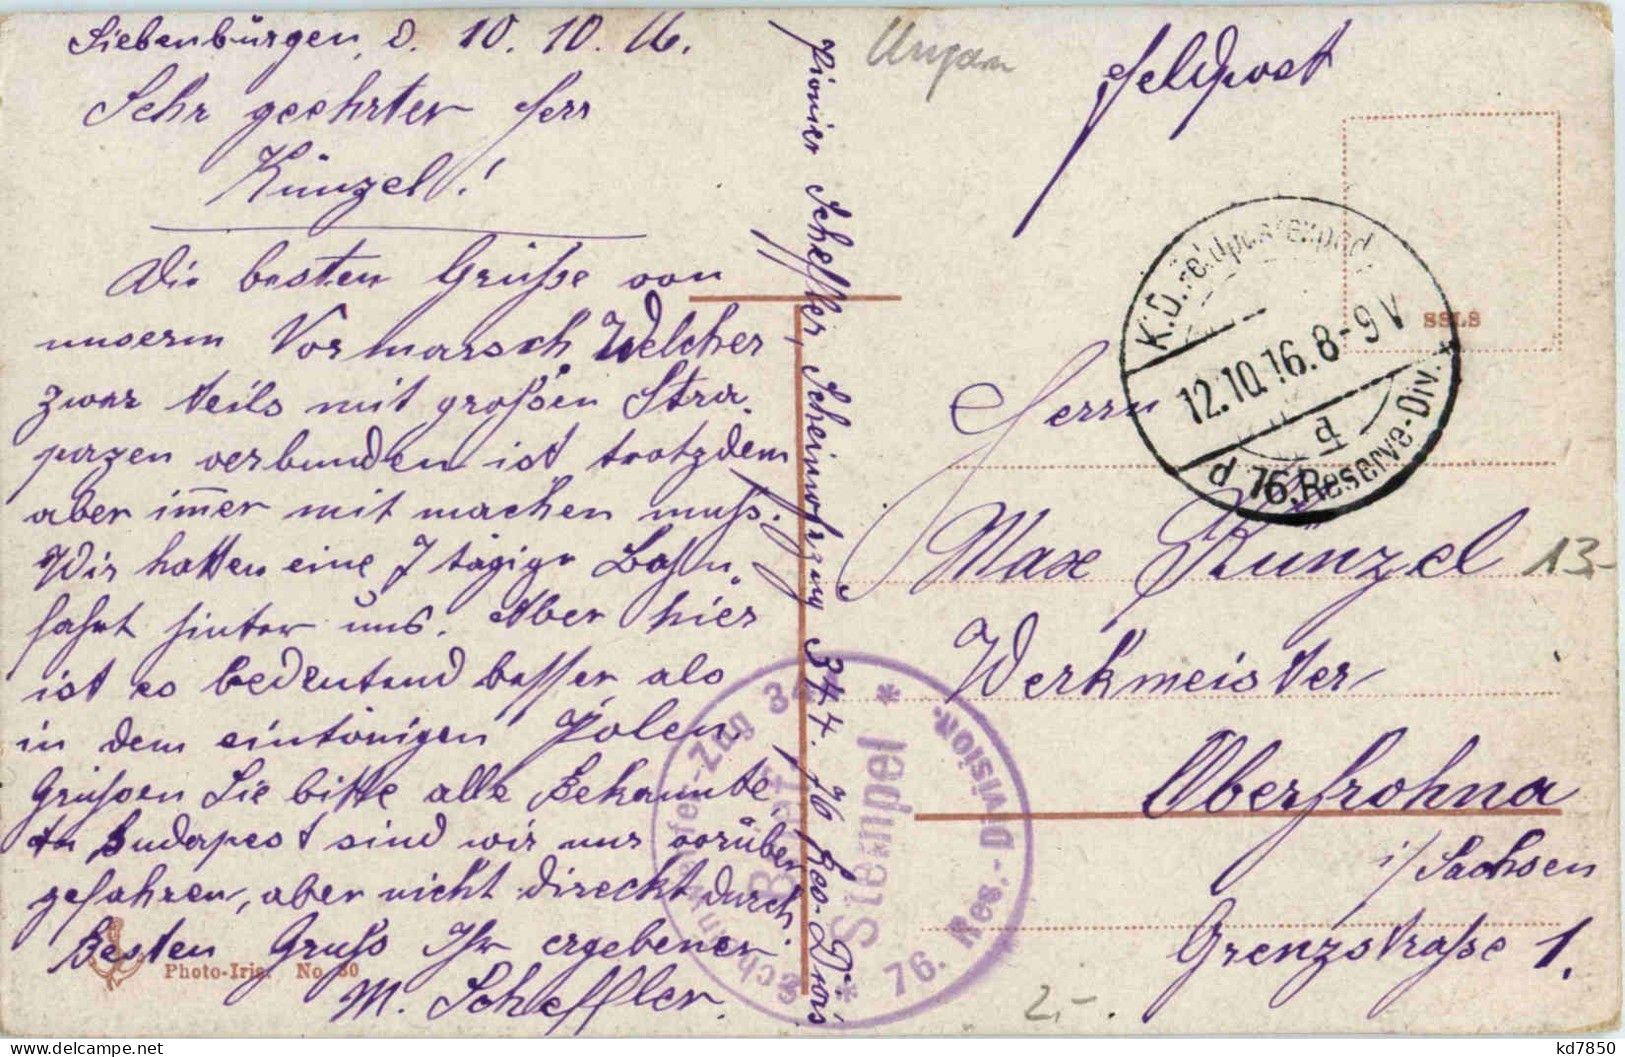 Siebenbürgen, d. 10. 10. 16.
Sehr geehrter Herr
Künzel!
Die besten Grüße von
unserm Vormarsch, Welcher
zwar teils mit großen Stra-
pazen verbunden ist, trotzdem
aber immer mit machen muß.
Wir hatten eine 7 tägige Bahn-
fahrt hinter uns. Aber hier
ist es bedeutend besser, als
in dem eintönigen Polen.
Grüßen Sie bitte alle Bekannte
In Budapest sind wir nur vorüber
gefahren, aber nicht direckt durch.
Besten Gruß Ihr ergebener
M. Scheffler.
Photo-Iris. No. 80
Pionier Scheffler, Scheinwfrzug 344. 76 Res-Divis
Ungarn
Feldpost
SSLS
K.D. Feldpostexped.
12.10.16. 8-9 V
d
d 76. Reserve-Div. +
Herrn
Max Künzel
13.-
Werkmeister
Oberfrohna
i/Sachsen
Grenzstraße 1.
2.-
Scheinwerfer-Zug 344
* 76. Res.-Division. *
Brief
Stempel
kd7850